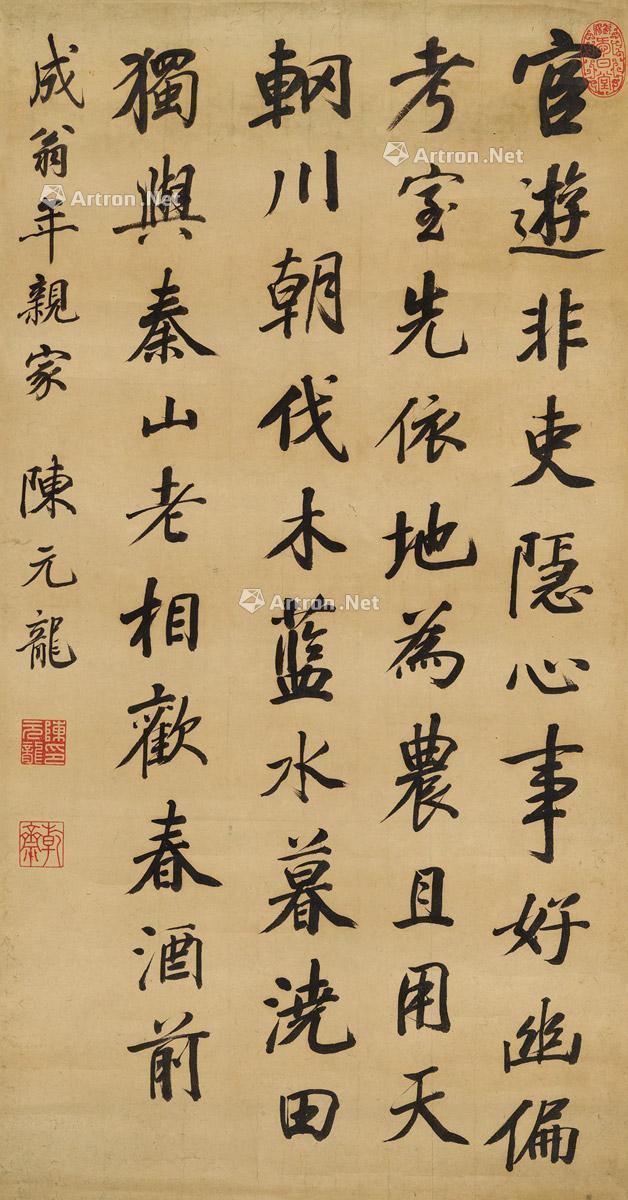 官遊非吏隱心事好幽偏
考室先依地為農且用天
輞川朝伐木藍水暮澆田
獨與秦山老相歡春酒前
成翁年親家 陳元龍
陳元龍印
乾齋
Artron.Net
Artron.Net
Artron.Net